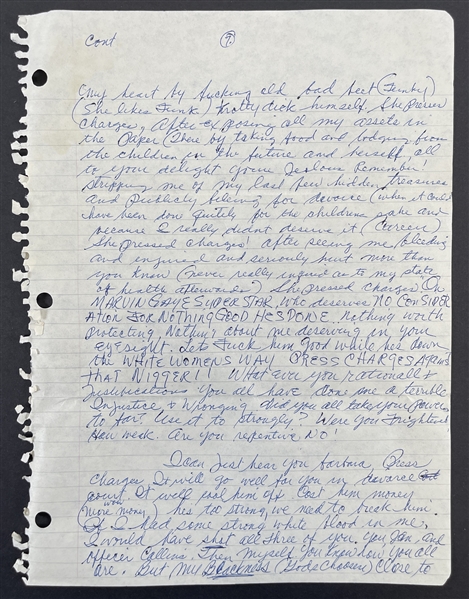 Cont 7.
My heart by fucking old bad feet (Funky)
(She likes Funk) himself. She pressed
charges, After exposing all my assets in
the Paper (There by taking food and lodging from
the children in the future and herself, all
to your delight your Jealous Remember!
Stripping me of my last few hidden treasures
and Publicly for divorce (when it could
have been don quitly for the childrens sake and
because I really didnt deserve it (Career)
She pressed charges! after seeing me bleeding
and injured and seriously hurt more than
you know (never really inquired as to my state
of health afterwards) She pressed Charges On
MARVIN GAYE SUPER STAR, who deserves NO CONSIDER
ATION FOR NOTHING GOOD HES DONE. nothing worth
protecting, Nothing about me deserving in your
eyesight. Lets Fuck him Good while hes down
the WHITE WOMENS WAY PRESS CHARGES AGAINST
THAT NIGGER!! What ever you rationally
Justification you all have done me a terrible
Injustice & Wronging did you all take your Powers
to far? Use it to strongly? Were you Frightened
How weak. Are you repentive NO!
I can Just hear you barbara, Press
Charges, It will go well for you in divorce
court. It will cost him money
more money) hes too strong, we need to break him.
If I had some strong white blood in me,
I would have shot all three of you. You, Jan, and
officer Collins. Then myself you know how you all
are. But My BLACKNESS (Gods Choosen) Close to